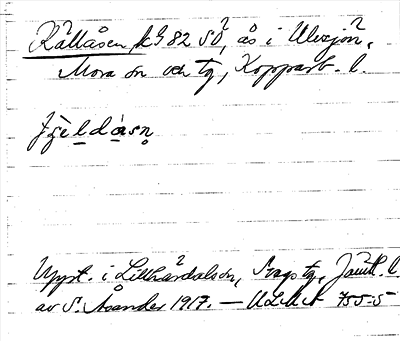 Källåsen, k 9 82 SO, ås i Ulvsjön,
Mora sn och tg, Kopparb. l.
Uppt. i Lillhärdalsdn, Svegs tg, Jämtl. l.
av S. Åsander 1917. — ULMA 755:5